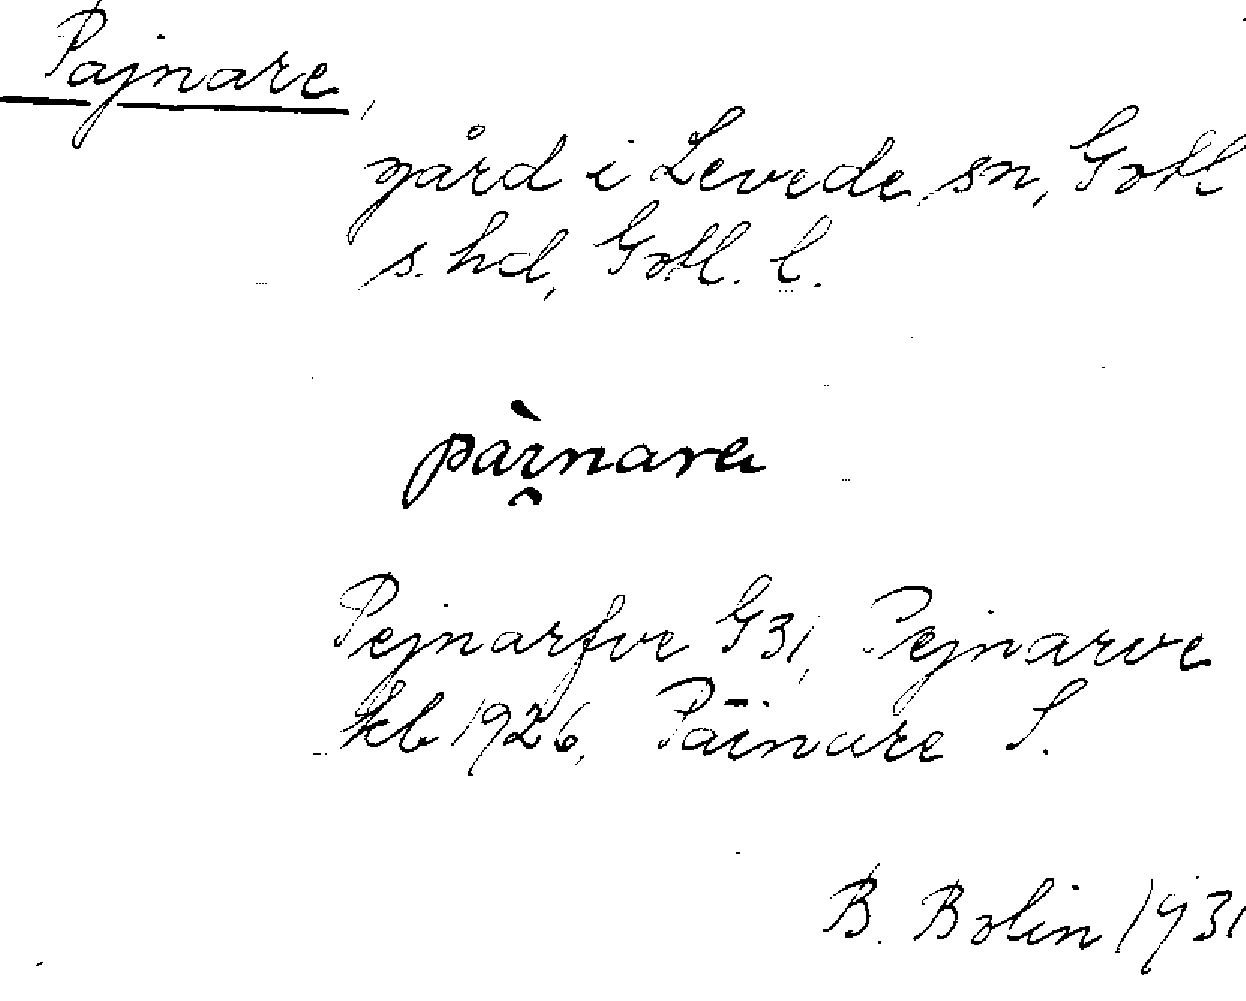 Pajnare,
gård i Levede sn, Gotl
s. hd, Gotl. l.
pàı̯nara
Pejnarfve G31, Pejnarve
Jkb 1926, Päinare S.
B. Bolin 1931